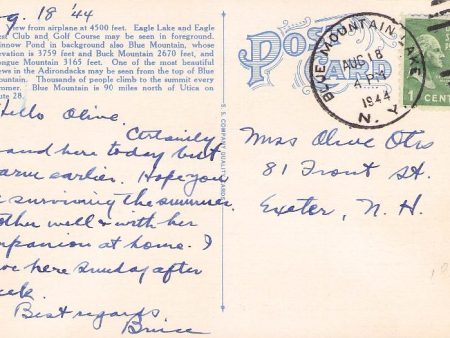 g. 18 '44
view from airplane at 4500 feet. Eagle Lake and Eagle
est Club and Golf Course may be seen in foreground.
innow Pond in background also Blue Mountain, whose
evation is 3759 feet and Buck Mountain 2670 feet, and
ongue Mountain 3165 feet. One of the most beautiful
iews in the Adirondacks may be seen from the top of Blue
ountain. Thousands of people climb to the summit every
mmer. Blue Mountain is 90 miles north of Utica on
ute 28.
ello Olive.
Certainly
and here today but
arm earlier. Hope you
surviving the summer.
other well & with her
mpanion at home. I
ve here Sunday after
eek.
Best regards
Brice
S. S. COMPANY QUALITY CARD
POST CARD
BLUE MOUNTAIN LAKE
AUG 18
1944
N. Y.
1 CENT
Miss Olive Otis
81 Front St.
Exeter, N. H.